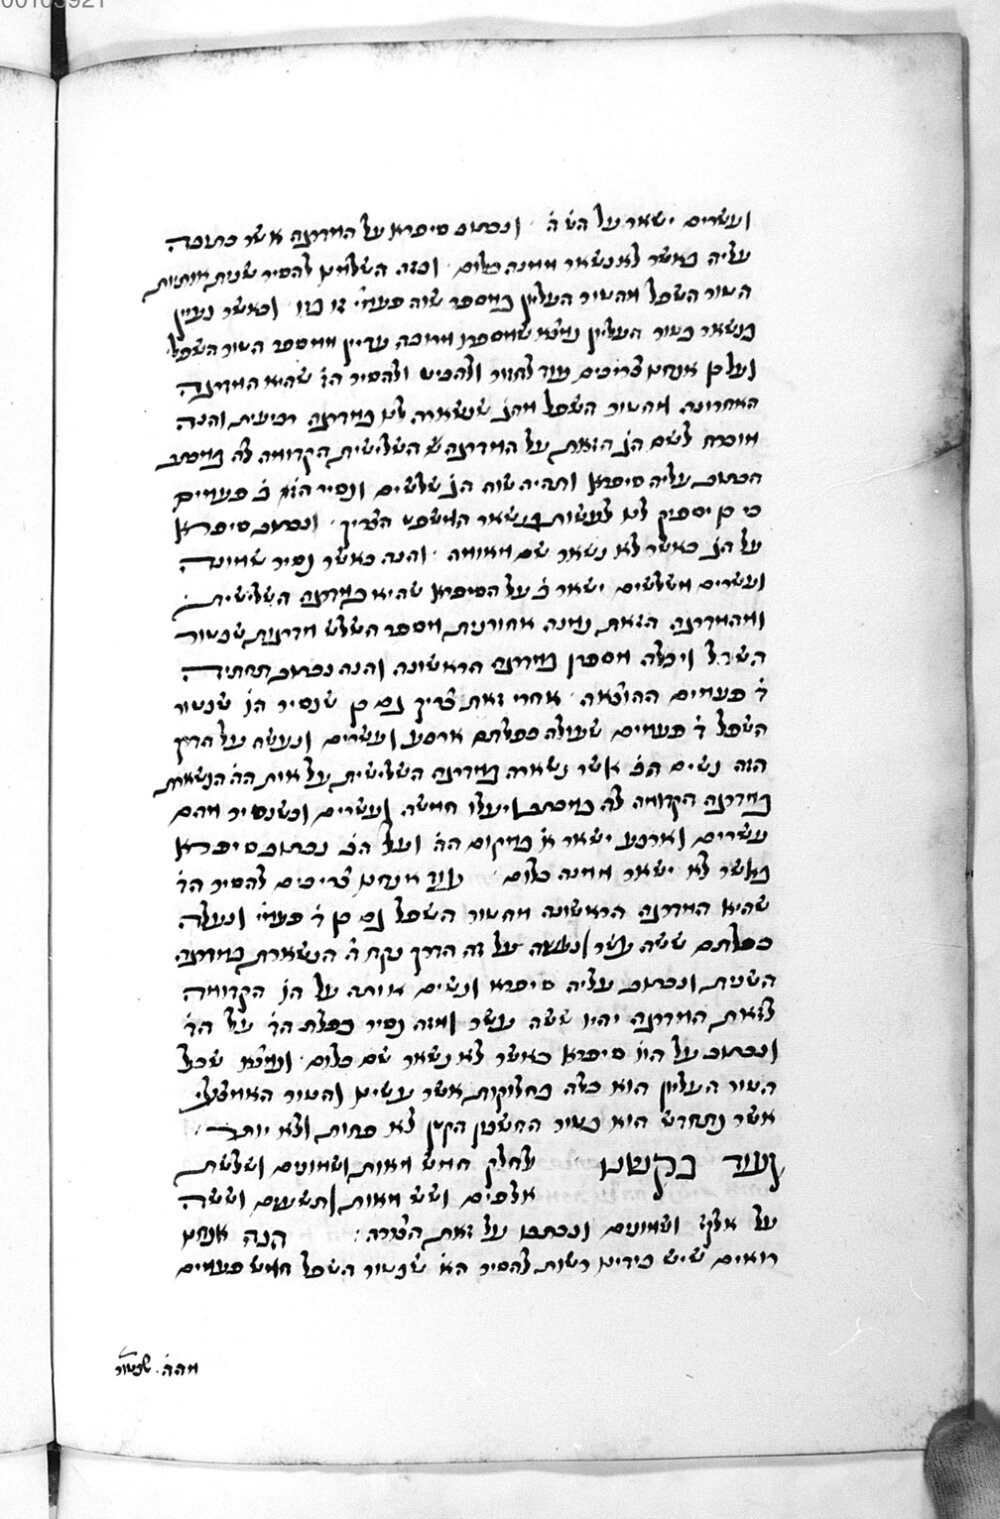 00105921
ועשרים ישאר על הש ה׳ ונכתוב סיפרא על המדרגה אשר כתובה
עליה כאשר לא נשאר ממנה כלום. ובזה השלמנו להסיר שנית אותיות
הטור השפל מהטור העליון במספר שוה פעמי׳ זו כזו. וכאשר נעיין
בנשאר בטור העליון נמצא שמספרו מרובה עדיין ממספר הטור השפל
ועל כן אנחנו צריכים עוד לחזור ולהביט ולהסיר הד׳ שהיא המדרגה
האחרונה מהטור השפל מהג׳ שנשארה לנו במדרגה רביעית והנה
מוכרח לשום הג׳ הזאת על המדרגה השלישית הקדומה לה במכתב
הכתוב עליה סיפרא ותהיה שוה הג׳ שלשים ונסיר הד׳ ז׳ פעמים
כי כן יספיק לנו לעשות בנשאר המשפט הצריך. ונכתוב סיפרא
על הג׳ כאשר לא נשאר שם מאומה. והנה כאשר נסיר שמונה
ועשרים משלשים ישאר ב׳ על הסיפרא שהיא במדרגה השלישית:
ומהמדרגה הזאת נמנה אחורנית מספר השלש מדרגות שבטור
השפל ויכלה מספרן במדרגה הראשונה והנה נכתוב תחתיה
ז׳ פעמים ההוצאה. אחרי זאת צריך גם כן שנסיר הו׳ שבטור
השפל ז׳ פעמים שעולה כפלתם ארבע ועשרים ונעשה על הדרך
הזה נשים הב׳ אשר נשארה במדרגה השלישית על אות הה׳ הנשארת
במדרגה הקדומה לה במכתב ויעלו חמשה ועשרים וכשנסיר מהם
עשרים וארבע ישאר א׳ במקום הה׳ ועל הב׳ נכתוב סיפרא
כאשר לא ישאר ממנה כלום. עוד אנחנו צריכים להסיר הד׳
שהיא המדרגה הראשונה מהטור השפל גם כן ד׳ פעמי׳ ונעלה
כפלתם ששה עשר ונעשה על זה הדרך נקח ה׳ הנשארת במדרגה
השנית ונכתוב עליה סיפרא ונשים אותה על הו׳ הקדומה
לזאת המדרגה יהיו ששה עשר ומזה נסיר כפלת הד׳ על הד׳
ונכתוב על הו׳ סיפרא כאשר לא נשאר שם כלום. ונמצא שכל
הטור העליון הוא כלה בחלוקות אשר עשינו והטור האמצעי
אשר נתחדש הוא בטור החשבון הקטן לא פחות ולא יותר:
ועוד בקשנו לחלק חמש מאות ושמונים ושלשת
אלפים ושש מאות ותשעים וששה
על אלף ושמונים ונכתבו על זאת הצורה: הנה אנחנו
רואים שיש בידינו רשות להסיר הא׳ שבטור השפל חמש פעמים
מהה׳ שבטור